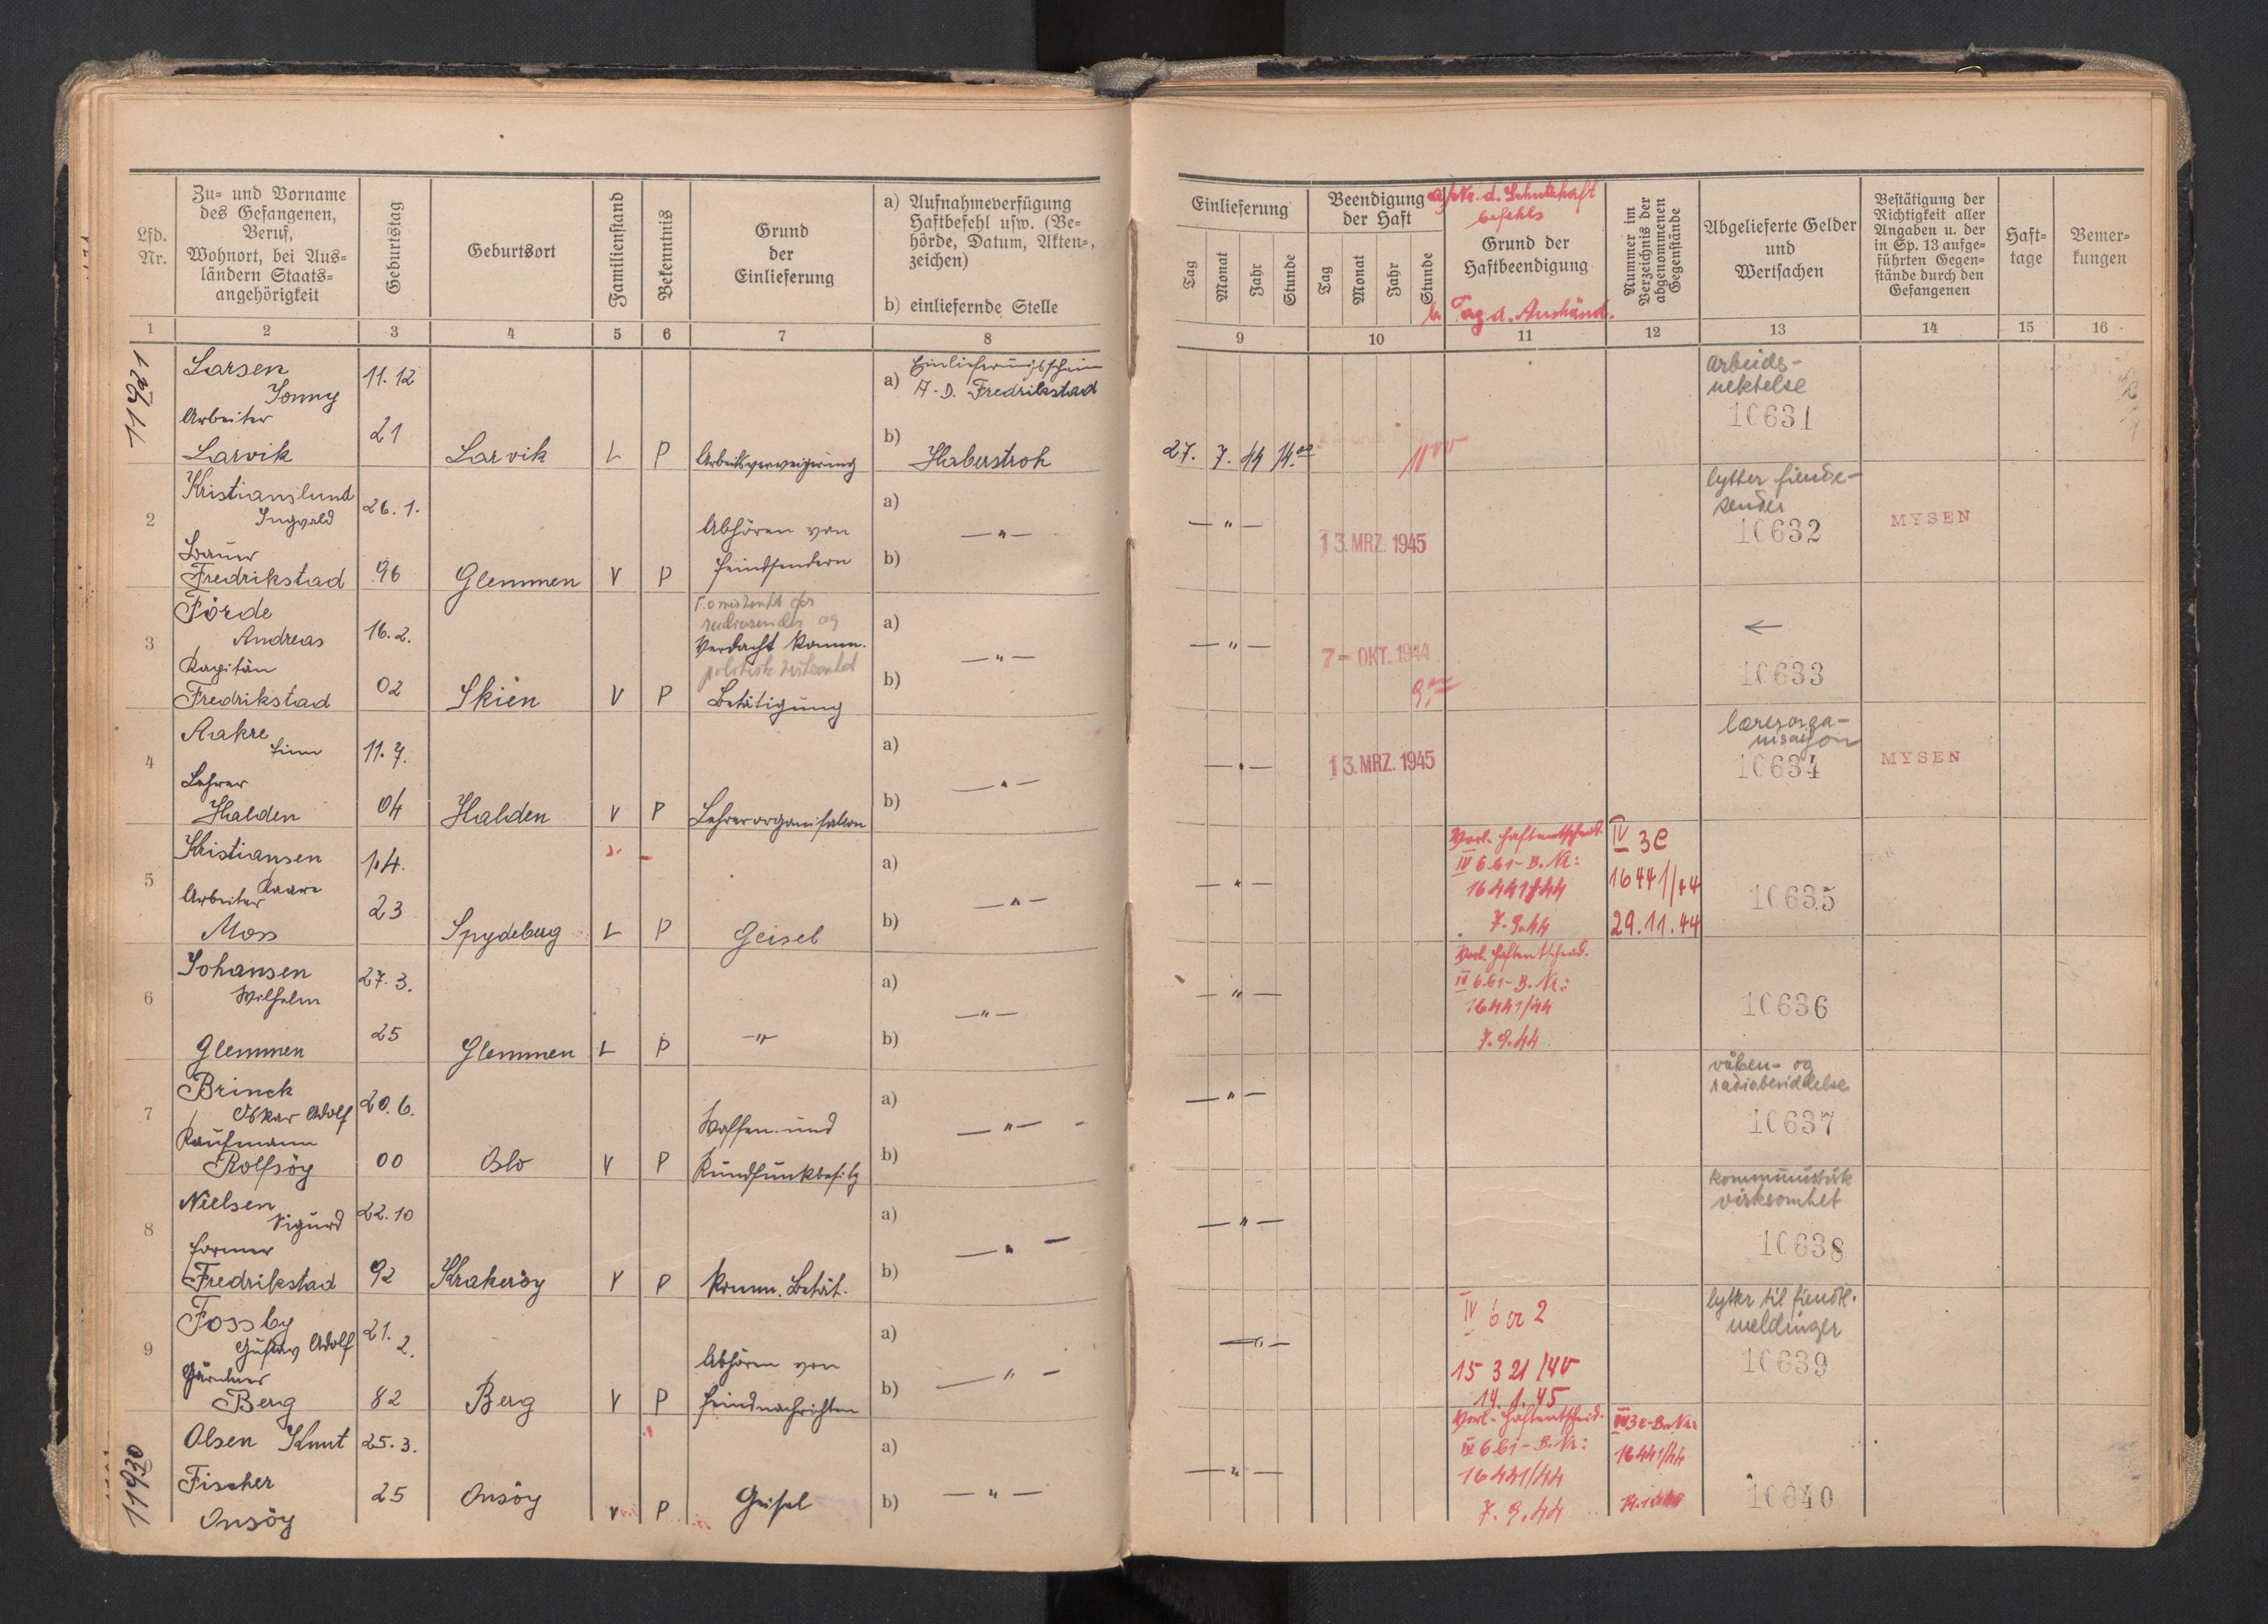 Lfd. Nr.
Zu- und Vorname
des Gefangenen,
Beruf,
Wohnort, bei Aus-
ländern Staats-
angehörigkeit
Geburtstag
Geburtsort
Familienstand
Bekenntnis
Grund
der
Einlieferung
a) Aufnahmeverfügung
Haftbefehl usw. (Be-
hörde, Datum, Akten-,
zeichen)
b) einliefernde Stelle
Einlieferung
Tag Monat Jahr Stunde
Beendigung
der Haft
Tag Monat Jahr Stunde
a) Nr. d. Schutzhaft
befehls
Grund der
Haftbeendigung
b. Tag d. Aushänd.
Nummer im
Verzeichnis der
abgenommenen
Gegenstände
Abgelieferte Gelder
und
Wertsachen
Bestätigung der
Richtigkeit aller
Angaben u. der
in Sp. 13 aufge-
führten Gegen-
stände durch den
Gefangenen
Haft-
tage
Bemer-
kungen
1 2 3 4 5 6 7 8 9 10 11 12 13 14 15 16
11921
Larsen
Jonny
Arbeiter
Larvik
11.12
21
Larvik
L P
Arbeitsverweigerung
a) Einlieferungsschein
A.D. Fredrikstad
b) Haberstroh
27. 7. 44 14.00
arbeids-
nektelse
10631
2
Kristianslund
Ingvald
Bauer
Fredrikstad
26.1.
96
Glemmen
V P
Abhören von
Feindsendern
a) — " —
b)
— " —
13. MRZ. 1945
lytter fiende-
sender
10632
MYSEN
3
Förde
Andreas
Kapitän
Fredrikstad
16.2.
02
Skien
V P
radiosender og
Verdacht komm.
Betätigung
a) — " —
b)
— " —
7- OKT. 1944
←
10633
4
Aakre
Finn
Lehrer
Halden
11.7.
04
Halden
V P
Lehrerorganisation
a) — " —
b)
— " —
13. MRZ. 1945
lærerorga-
nisasjon
10634
MYSEN
5
Kristiansen
Kaare
Arbeiter
Moss
1.4.
23
Spydeberg
L P
Geisel
a) — " —
b)
— " —
Vorl. Haftentscheid.
IV 6 b1 - B. Nr:
16441/44
7.9.44
IV 3 C
16441/44
29.11.44
10635
6
Johansen
Wilhelm
Glemmen
27.3.
25
Glemmen
L P
— " —
a) — " —
b)
— " —
Vorl. Haftentscheid.
IV 6 b1 - B. Nr:
16441/44
7.9.44
10636
7
Brinck
Oskar Adolf
Kaufmann
Rolfsöy
20.6.
00
Oslo
V P
Waffen- und
Rundfunkbesitz
a) — " —
b)
— " —
våben- og
radiobesiddelse
10637
8
Nielsen
Sigurd
Former
Fredrikstad
22.10
92
Krakeröy
V P
Komm. Betät.
a) — " —
b)
— " —
kommunistisk
virksomhet
10638
9
Fossby
Gustav Adolf
Gärtner
Berg
21.2.
82
Berg
V P
Abhören von
Feindnachrichten
a) — " —
b)
— " —
IV 6 a 2
14.1.45
lytter til fiendtl.
meldinger
10639
11930
Olsen Knut
Fischer
Onsöy
25.3.
25
Onsöy
V P
Geisel
a)
b) — " —
— " —
Vorl. Haftentscheid.
IV 6 b1 - B. Nr:
16441/44
7.9.44
IV 3 c - B. Nr:
16441/44
10640